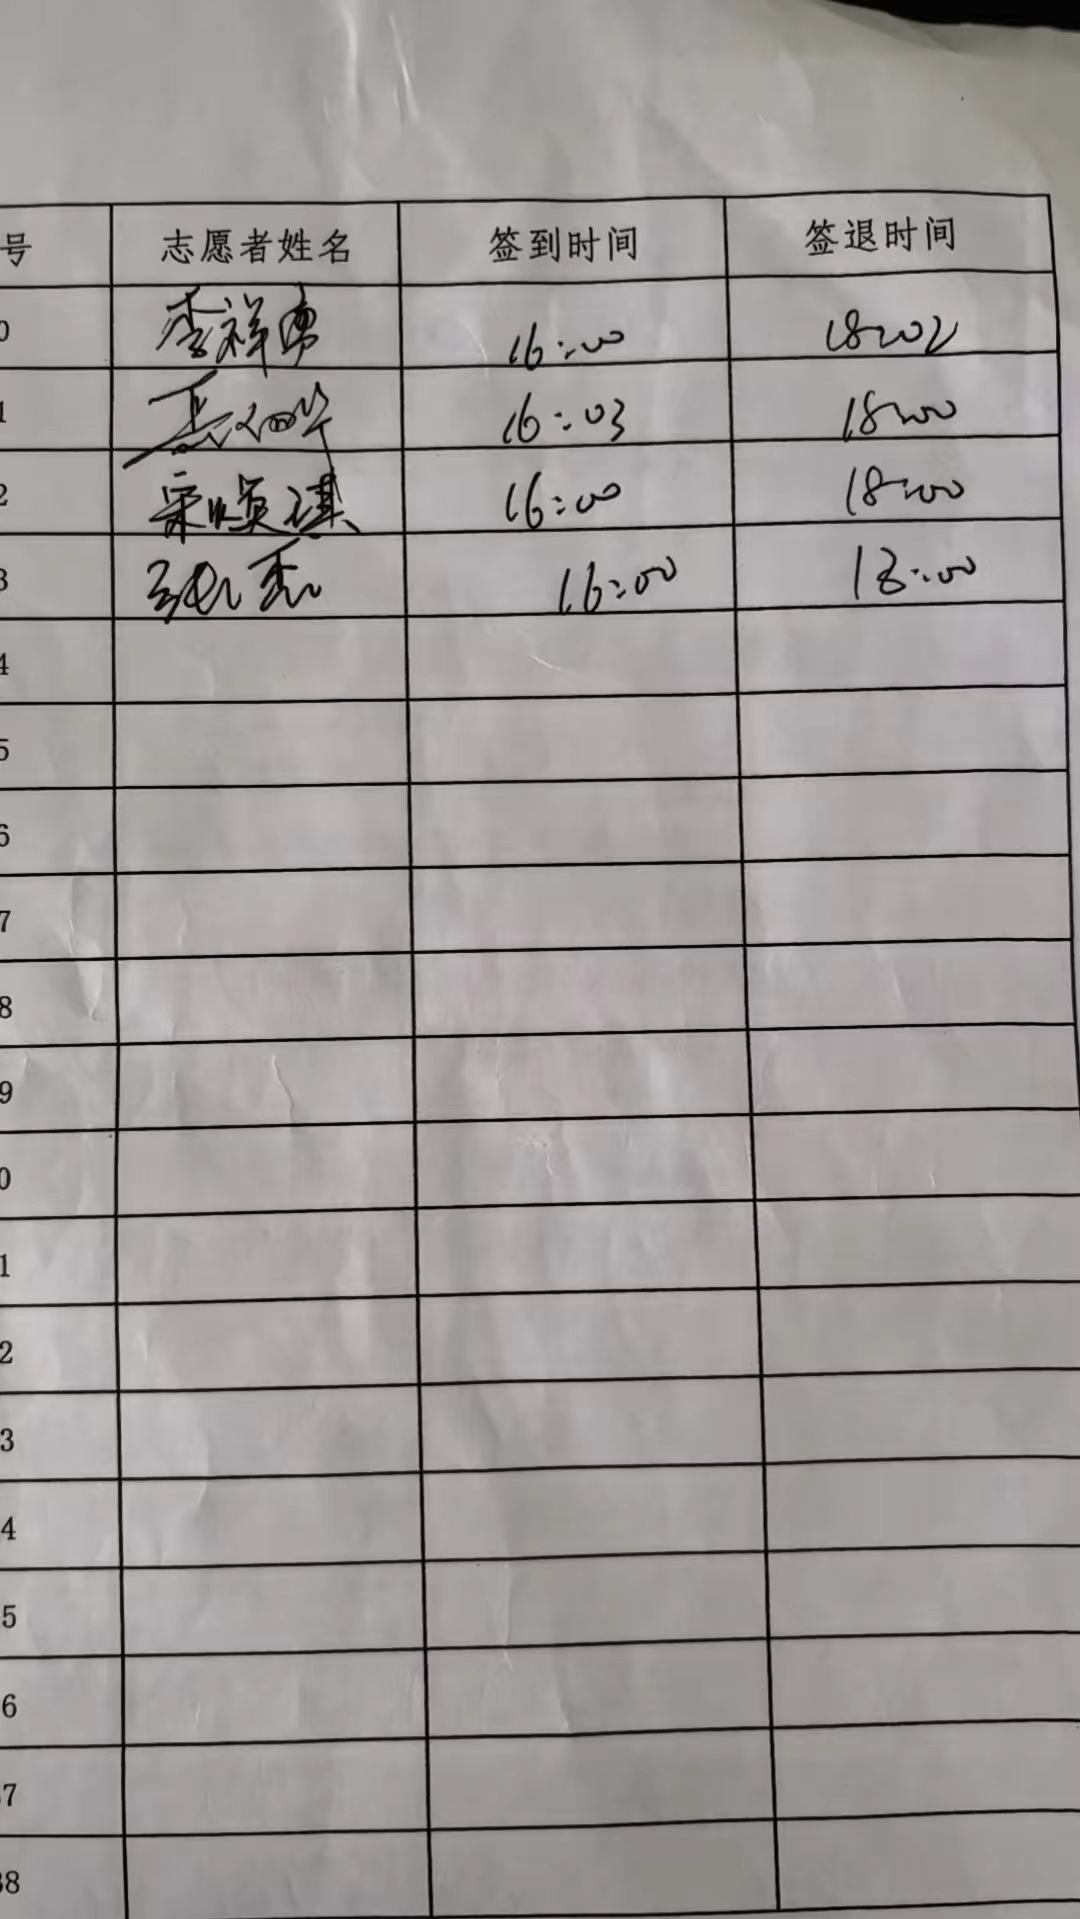 号 志愿者姓名 签到时间 签退时间
0 李祥勇 16:00 18:02
1 16:03 18:00
2 宋焕琪 16:00 18:00
3 张杰 16:00 18:00
4
5
6
7
8
9
0
1
2
3
4
5
6
7
38